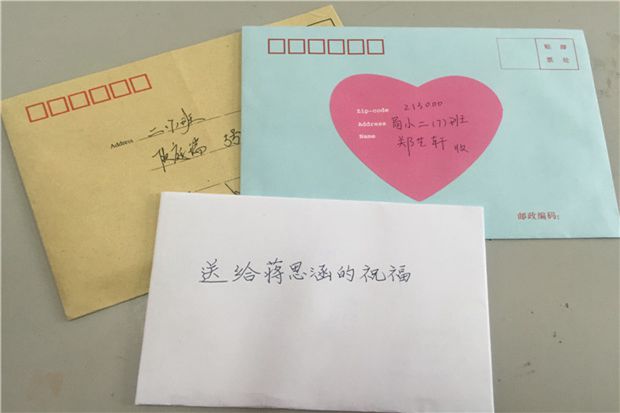 Address 二(7)班
号
贴 邮
票 处
Zip-code 213000
Address 局小二(7)班
Name 郑艺轩 收
邮政编码:
送给蒋思涵的祝福